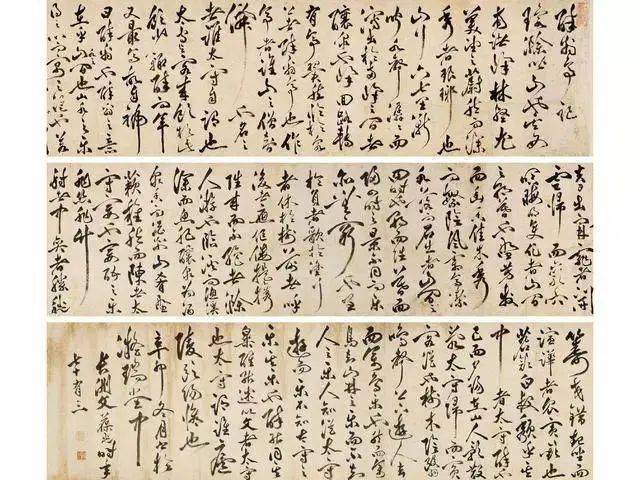 醉翁亭記
環滁皆山也其西
南諸峰林壑尤
美望之蔚然而深
秀者瑯琊也
山行六七里漸
聞水聲潺潺而
瀉出於兩峰之間者
釀泉也峰回路轉
有亭翼然臨於泉
上者醉翁亭也作
亭者誰山之僧智
僊也名之
者誰太守自謂也
太守與客來飲於此
飲少輒醉而年
又最高故自號
曰醉翁也醉翁之意
在山水之間也山水之樂
得之心而寓之酒也若
夫日出而林霏開
雲歸而巖穴
暝晦明變化者山間
之朝暮也野芳發
而幽香佳木秀
而繁陰風霜高潔
水落石出者山間之
四時也朝而往暮而
歸四時之景不同而樂
亦無窮也至
於負者歌於塗行
者休於樹前者呼
後者應傴僂提攜
往來而不絕者滁
人遊也臨溪而漁溪
深而魚肥釀泉為酒
泉香而酒洌山肴野
蔌雜然而前陳者太
守宴也宴酣之樂
非絲非竹
射者中弈者勝觥
籌交錯起坐而
諠譁者衆賓歡也
蒼顏白髮頹然乎其
中者太守醉也
已而夕陽在山人影散
亂太守歸而賓
客從也樹林陰翳
鳴聲上下遊人去
而禽鳥樂也然而禽
鳥知山林之樂而不知
人之樂人知從太守
遊而樂而不知太守之
樂其樂也醉能同其
樂醒能述以文者太守
也太守謂誰廬
陵歐陽脩也
辛卯冬月書於
堂中
長洲文葆光時年
七十有三